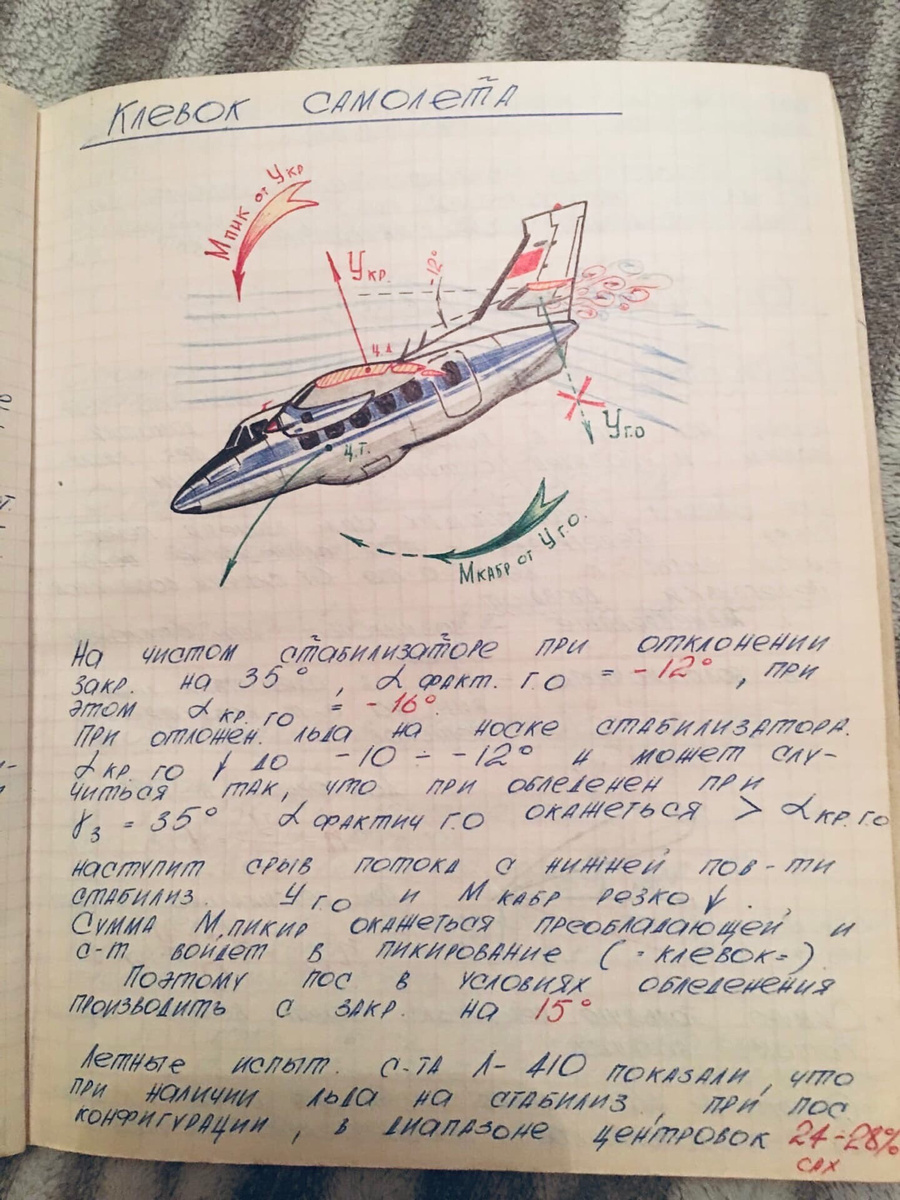 Клевок самолета
Мпик от Укр
Укр.
-12°
ц.д
ц.т.
Уг.о
Мкабр от Уг.о.
На чистом стабилизаторе при отклонении
закр. на 35°, α факт. г.о = -12°, при
этом α кр. го = -16°.
При отложен. льда на носке стабилизатора.
α кр. го ↓ до -10 ÷ -12° и может слу-
читься так, что при обледенен при
γз = 35° α фактич г.о окажеться > α кр. го
наступит срыв потока с нижней пов-ти
стабилиз. У го и М кабр резко ↓.
Сумма М.пикир окажеться преобладающей и
с-т войдет в пикирование (=клевок=)
Поэтому пос в условиях обледенения
производить с закр. на 15°
Летные испыт. с-та Л-410 показали, что
при наличии льда на стабилиз, при пос
конфигурации, в диапазоне центровок 24-28%
сах